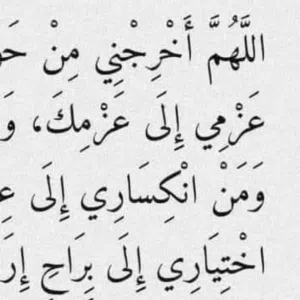 اللَّهُمَّ أَخْرِجْنِي مِنْ
عَزْمِي إِلَى عَزْمِكَ،
وَمَنْ انْكِسَارِي إِلَى
اخْتِيَارِي إِلَى بِرَاحِ